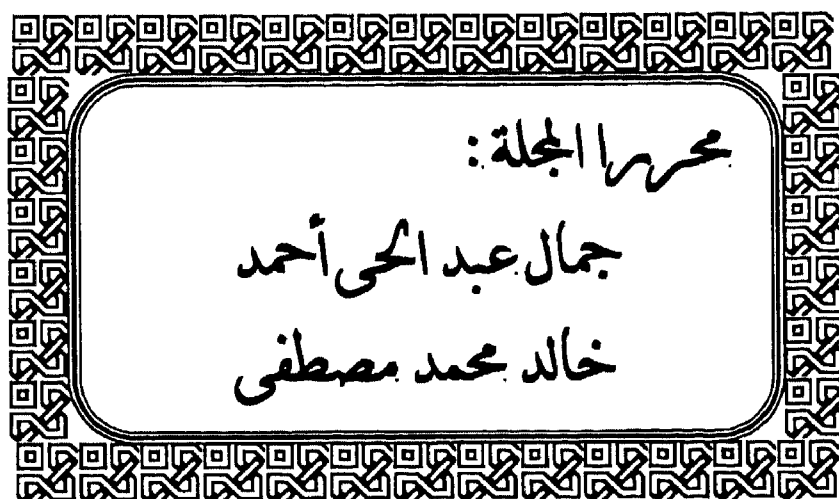 محررا المجلة :
جمال عبد الحى أحمد
خالد محمد مصطفى